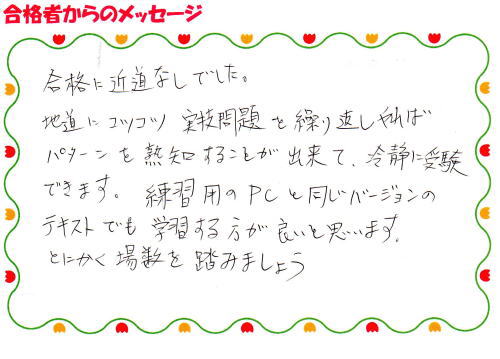 合格者からのメッセージ
合格に近道なしでした。
地道にコツコツ 実技問題を繰り返しやれば
パターンを熟知することが出来て、冷静に受験
できます。練習用のPCと同じバージョンの
テキストでも学習する方が良いと思います。
とにかく場数を踏みましょう